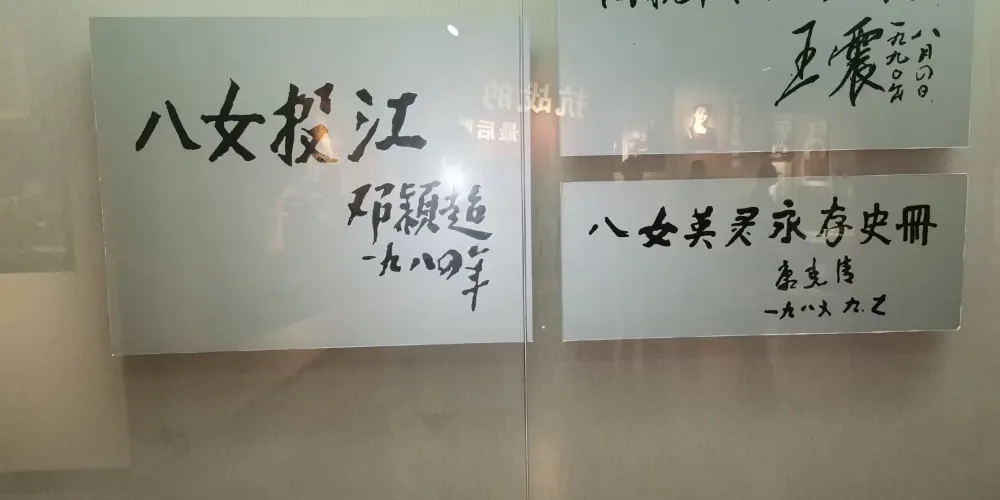 八女投江
邓颖超
一九八四年
王震
一九九〇年
八月四日
八女英灵永存史册
康克清
一九八六 九.七
抗战的
最后